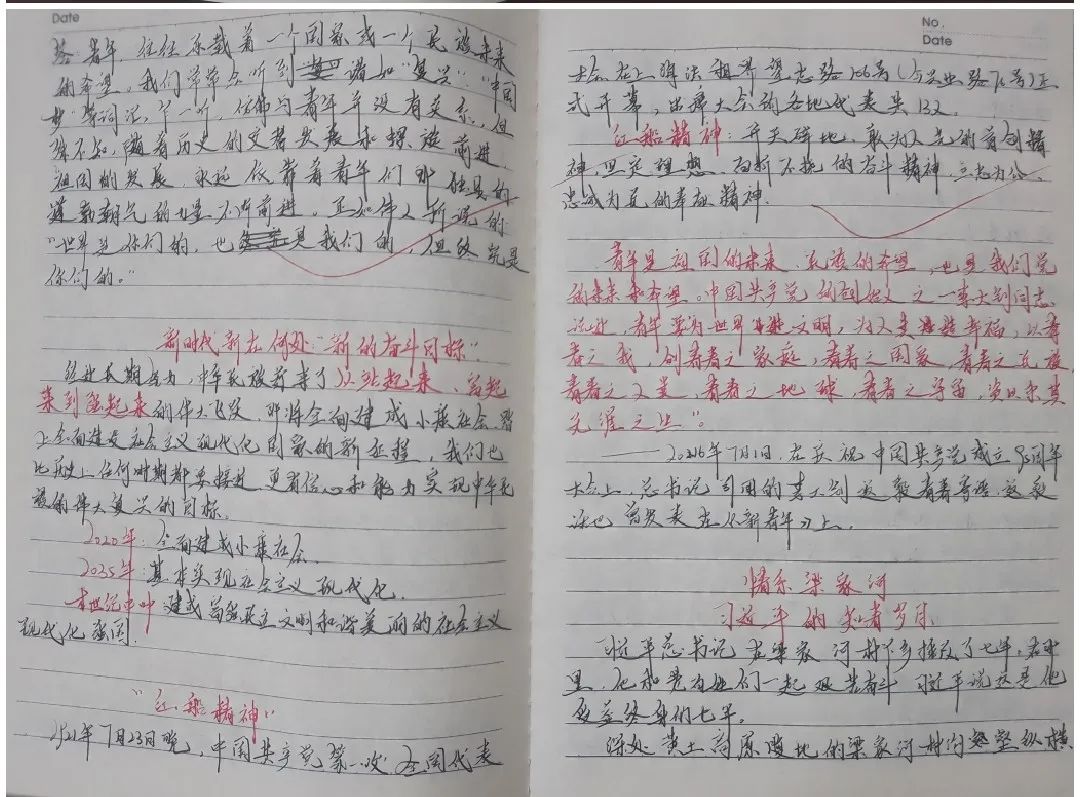 Date
青年，往往承载着一个国家或一个民族未来
的希望。我们常常会听到 诸如"复兴"、"中国
梦"等词汇，乍一听，仿佛与青年并没有关系，但
殊不知，随着历史的 发展和 前进，
祖国的发展，永远依靠着青年们那独具的
蓬勃朝气的力量不断前进。正如伟人所说的
"世界是你们的，也 是我们的，但终究是
你们的。"
新时代新在何处："新的奋斗目标"。
经过长期努力，中华民族迎来了从站起来、富起
来到强起来的伟大飞跃，即将全面建成小康社会，踏
上全面建设社会主义现代化国家的新征程，我们也
比历史上任何时期都要接近、更有信心和能力实现中华民
族的伟大复兴的目标。
2020年：全面建成小康社会。
2035年：基本实现社会主义现代化。
本世纪中叶 建成富强民主文明和谐美丽的社会主义
现代化强国。
"红船精神"
1921年7月23日晚，中国共产党第一次全国代表
No.
Date
大会在上海法租界望志路106号(今兴业路76号)正
式开幕，出席大会的各地代表共13人。
红船精神：开天辟地、敢为人先的首创精
神，坚定理想、百折不挠的奋斗精神，立党为公、
忠诚为民的奉献精神。
青年是祖国的未来、民族的希望，也是我们党
的未来和希望。中国共产党的创始人之一李大钊同志
说过，青年要为世界进文明，为人类造幸福，以青
春之我，创青春之家庭，青春之国家，青春之民族，
青春之人类，青春之地球，青春之宇宙，资以乐其
无涯之生"。
——2016年7月1日，在庆祝中国共产党成立95周年
大会上，总书记引用的李大钊这段青春寄语，这段
话也曾发表在《新青年》上。
情系梁家河
习近平的知青岁月
习近平总书记在梁家河村下乡插队了七年，在那
里，他和党员他们一起艰苦奋斗，习近平说这是他
受益终身的七年。
深处黄土高原腹地的梁家河村沟壑纵横，